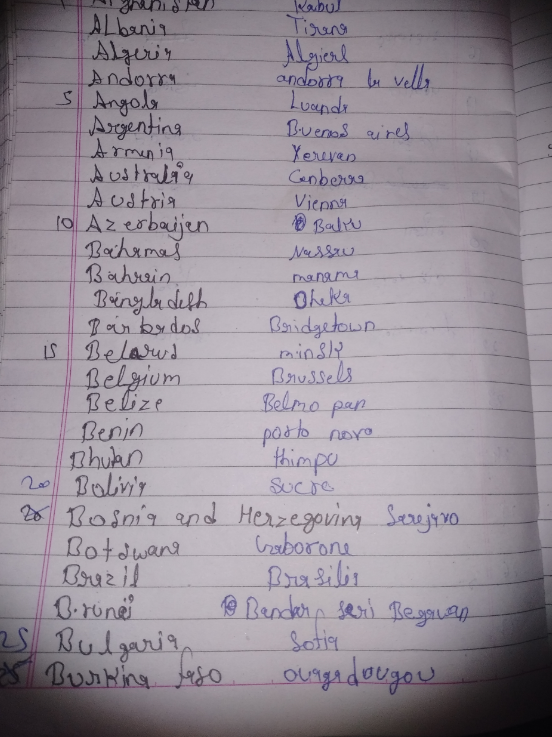 Afghanistan Kabul
Albania Tirana
Algeria Algierl
Andorra andorra la vella
5 Angola Luanda
Argentina Buenos aires
Armenia Yerevan
Australia Canberra
Austria Vienna
10 Azerbaijen Baku
Bahamas Nassau
Bahrain manama
Bangladesh Dhaka
Barbados Bridgetown
15 Belarus minsk
Belgium Brussels
Belize Belmo pan
Benin porto novo
Bhutan thimpu
20 Bolivia sucre
Bosnia and Herzegovina Sarejavo
Botswana Gaborone
Brazil Brasilia
Brunei Bandar seri Begawan
25 Bulgaria Sofia
Burkina faso ouagadougou